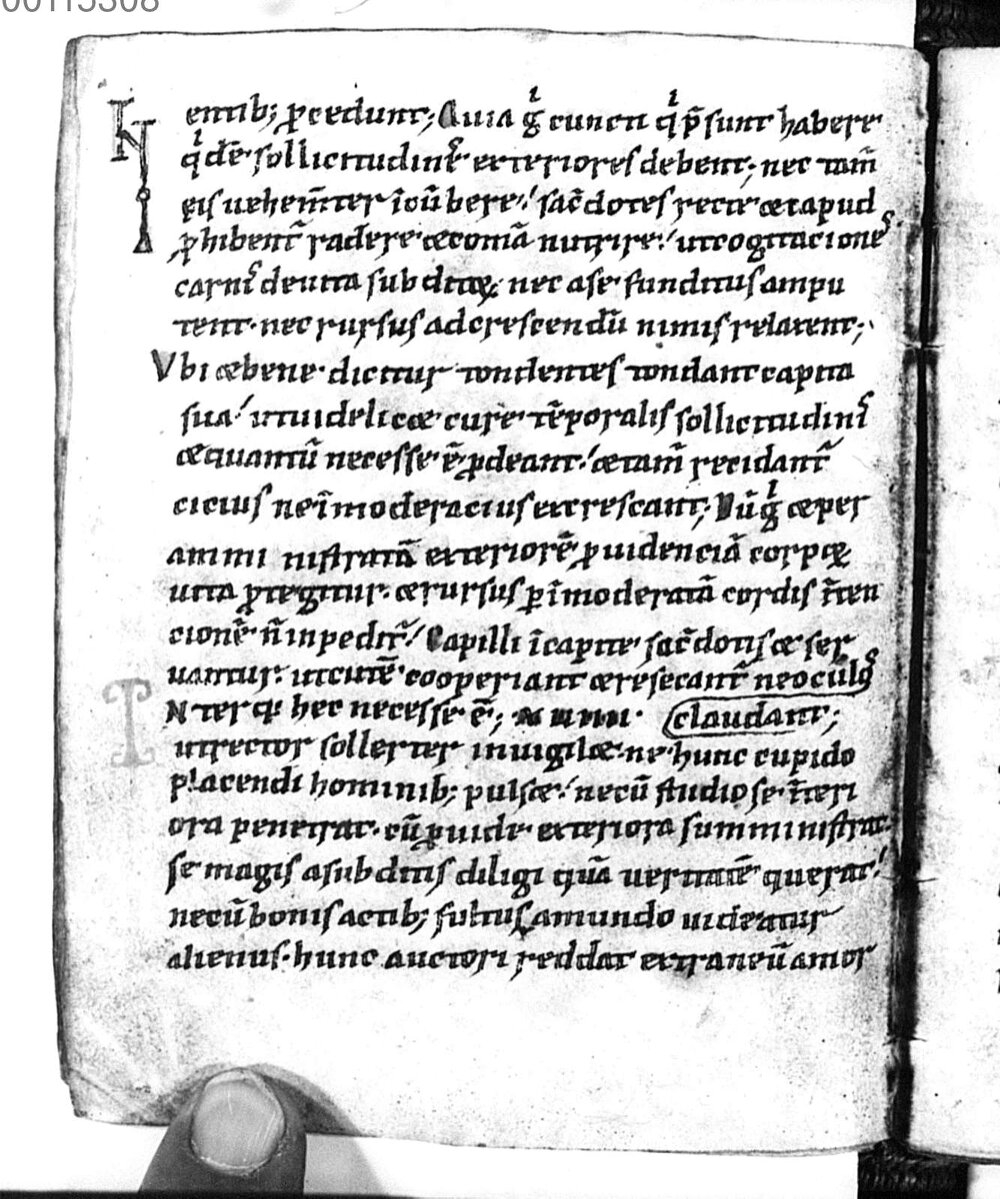 00115308
entib; ꝓcedunt; Quia gͥ cuncti qͥ p̄sunt habere
qͥdē sollicitudinē exteriores debent; nec tam̄
eis uehem̄ter īcūbere! sac̄dotes recte & caput
ꝓhibent̄ radere & comā nutrire! ut cogitacionēs
carnis̄ de uita subditoꝝ nec a se funditus ampu
tent· nec rursus ad crescendū nimis relaxent;
Vbi & bene dicitur tondentes tondant capita
sua! ut uidelic& cure tēporalis sollicitudinis̄
& quantū necesse ē ꝓdeant! & tam̄ recidant̄
cicius ne īmoderacius excrescant; Dū gͥ & per
amministratā exteriorē ꝓuidenciā corpoꝝ
uita ꝓtegitur· & rursus ꝑ īmoderatā cordis īten
cionē n̄ inpedit̄! Capilli ī capite sac̄dotis & ser
uantur· ut cutē cooperiant & resecant̄ ne oculos
claudant;
INter q; hec necesse ē;
ut rector sollerter inuigil& ne hunc cupido
placendi hominib; puls&! ne cū studiose īteri
ora penetrat· cū ꝓuide exteriora sumministrat·
se magis a subditis diligi quā ueritatē querat!
ne cū bonis actib; fultus a mundo uideatur
alienus· hunc auctori reddat extraneū amor